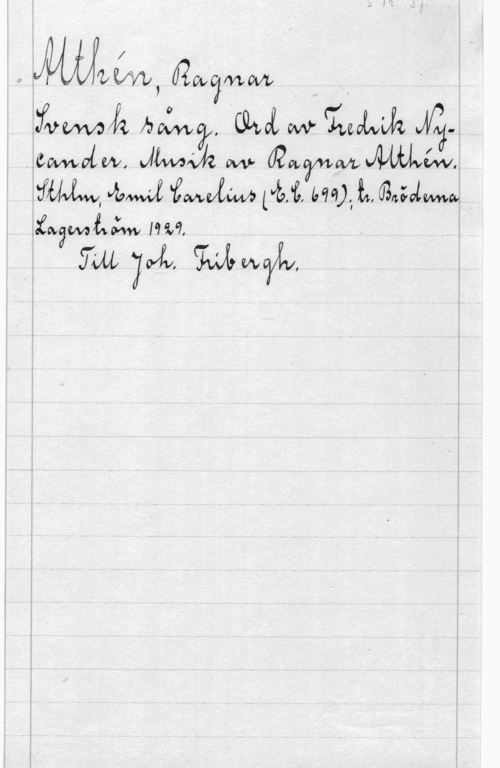 Althén, Ragnar
Svensk sång. Ord av Fredrik Ny-
cander. Musik av Ragnar Althén.
Sthlm, Emil Carelius (E.C. 699); tr. Bröderna
Lagerström 1929.
Till Joh. Fribergh.